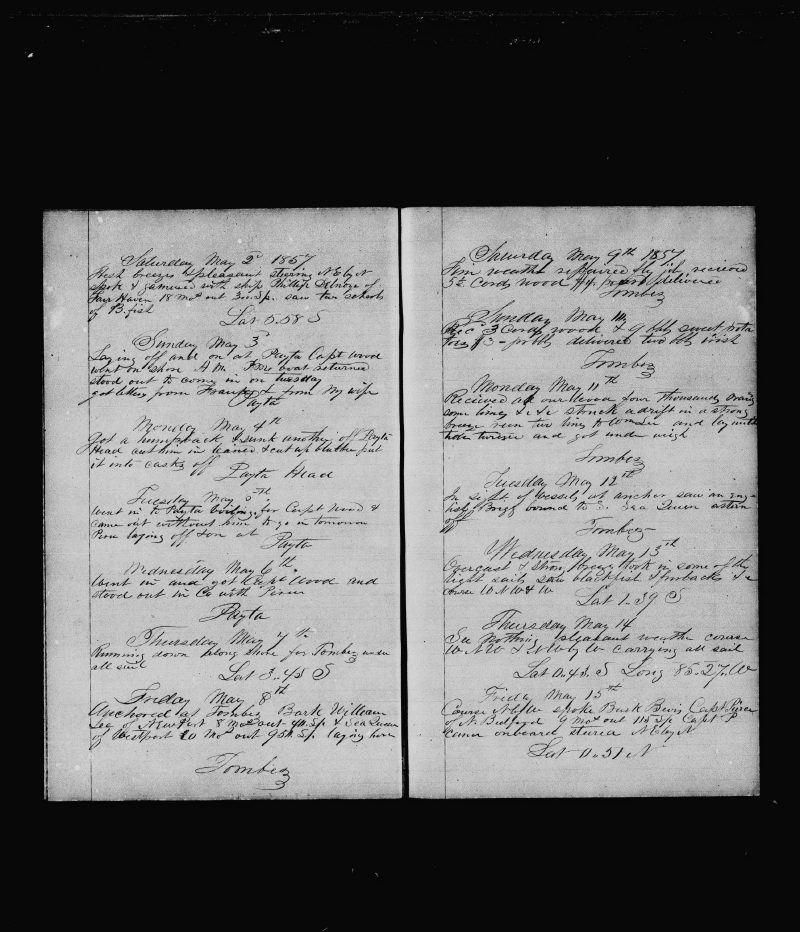 Saturday May 2d 1857
Fresh breezes & pleasant steering N E by N
spoke & gamised with ship Phillip Delnoye of
Fair Haven 18 mos out 300 Sp. saw two schools
of B. fish
Lat 5.58 S
Sunday May 3d
Laying off and on at Payta Capt Wood
went on shore A.M. boat returned
stood out to come in on tuesday
got letters from & from My wife
Payta
Monday May 4th
Got a humpback & sunk another off Payta
Head cut him in leaned & cut up blubber put
it into casks off
Payta Head
Tuesday May 5th
Went in to Payta for Capt Wood &
came out without him to go in tomorrow
Peru laying off & on at
Payta
Wednesday May 6th
Went in and got Capt Wood and
stood out in Co with Peru
Payta
Thursday May 7th
Running down along Shore for Tombez under
all sail
Lat 3.45 S
Friday May 8th
Anchored at Tombes Bark William
Lee of Newport 8 mos out Sp & Sea Queen
of Westport 20 mos out 950 Sp. laying here
Tombez
Saturday May 9th 1857
weather repaired fly jib, recieved
5 Cords wood delivered
Tombez
Sunday May
Recd 3 Cords woook & 9 bbls sweet pota
toes delivered two bbls irish
Tombez
Monday May 11th
Recieved all our wood four thousand
some limes & & struck adrift in a strong
breeze two lines and lay until
and got under weigh
Tombez
Tuesday May 12th
In sight of vessels at anchor saw an Eng-
lish Brigg bound to Sea Queen astern
off
Tombez
Wednesday May 13th
Overcast & strong breeze took in some of the
light sails saw blackfish & finbacks &c
course W N W & W
Lat 1.39 S
Thursday May 14
See Nothing pleasant weather course
W N W & N W by W carrying all sail
Lat 0.43 S Long 85.27 W
Friday May 15th
Course N E spoke Bark Capt
of N. Bedford 9 mos out 115 Sp Capt P
came onboard N E by N
Lat 0.51 N